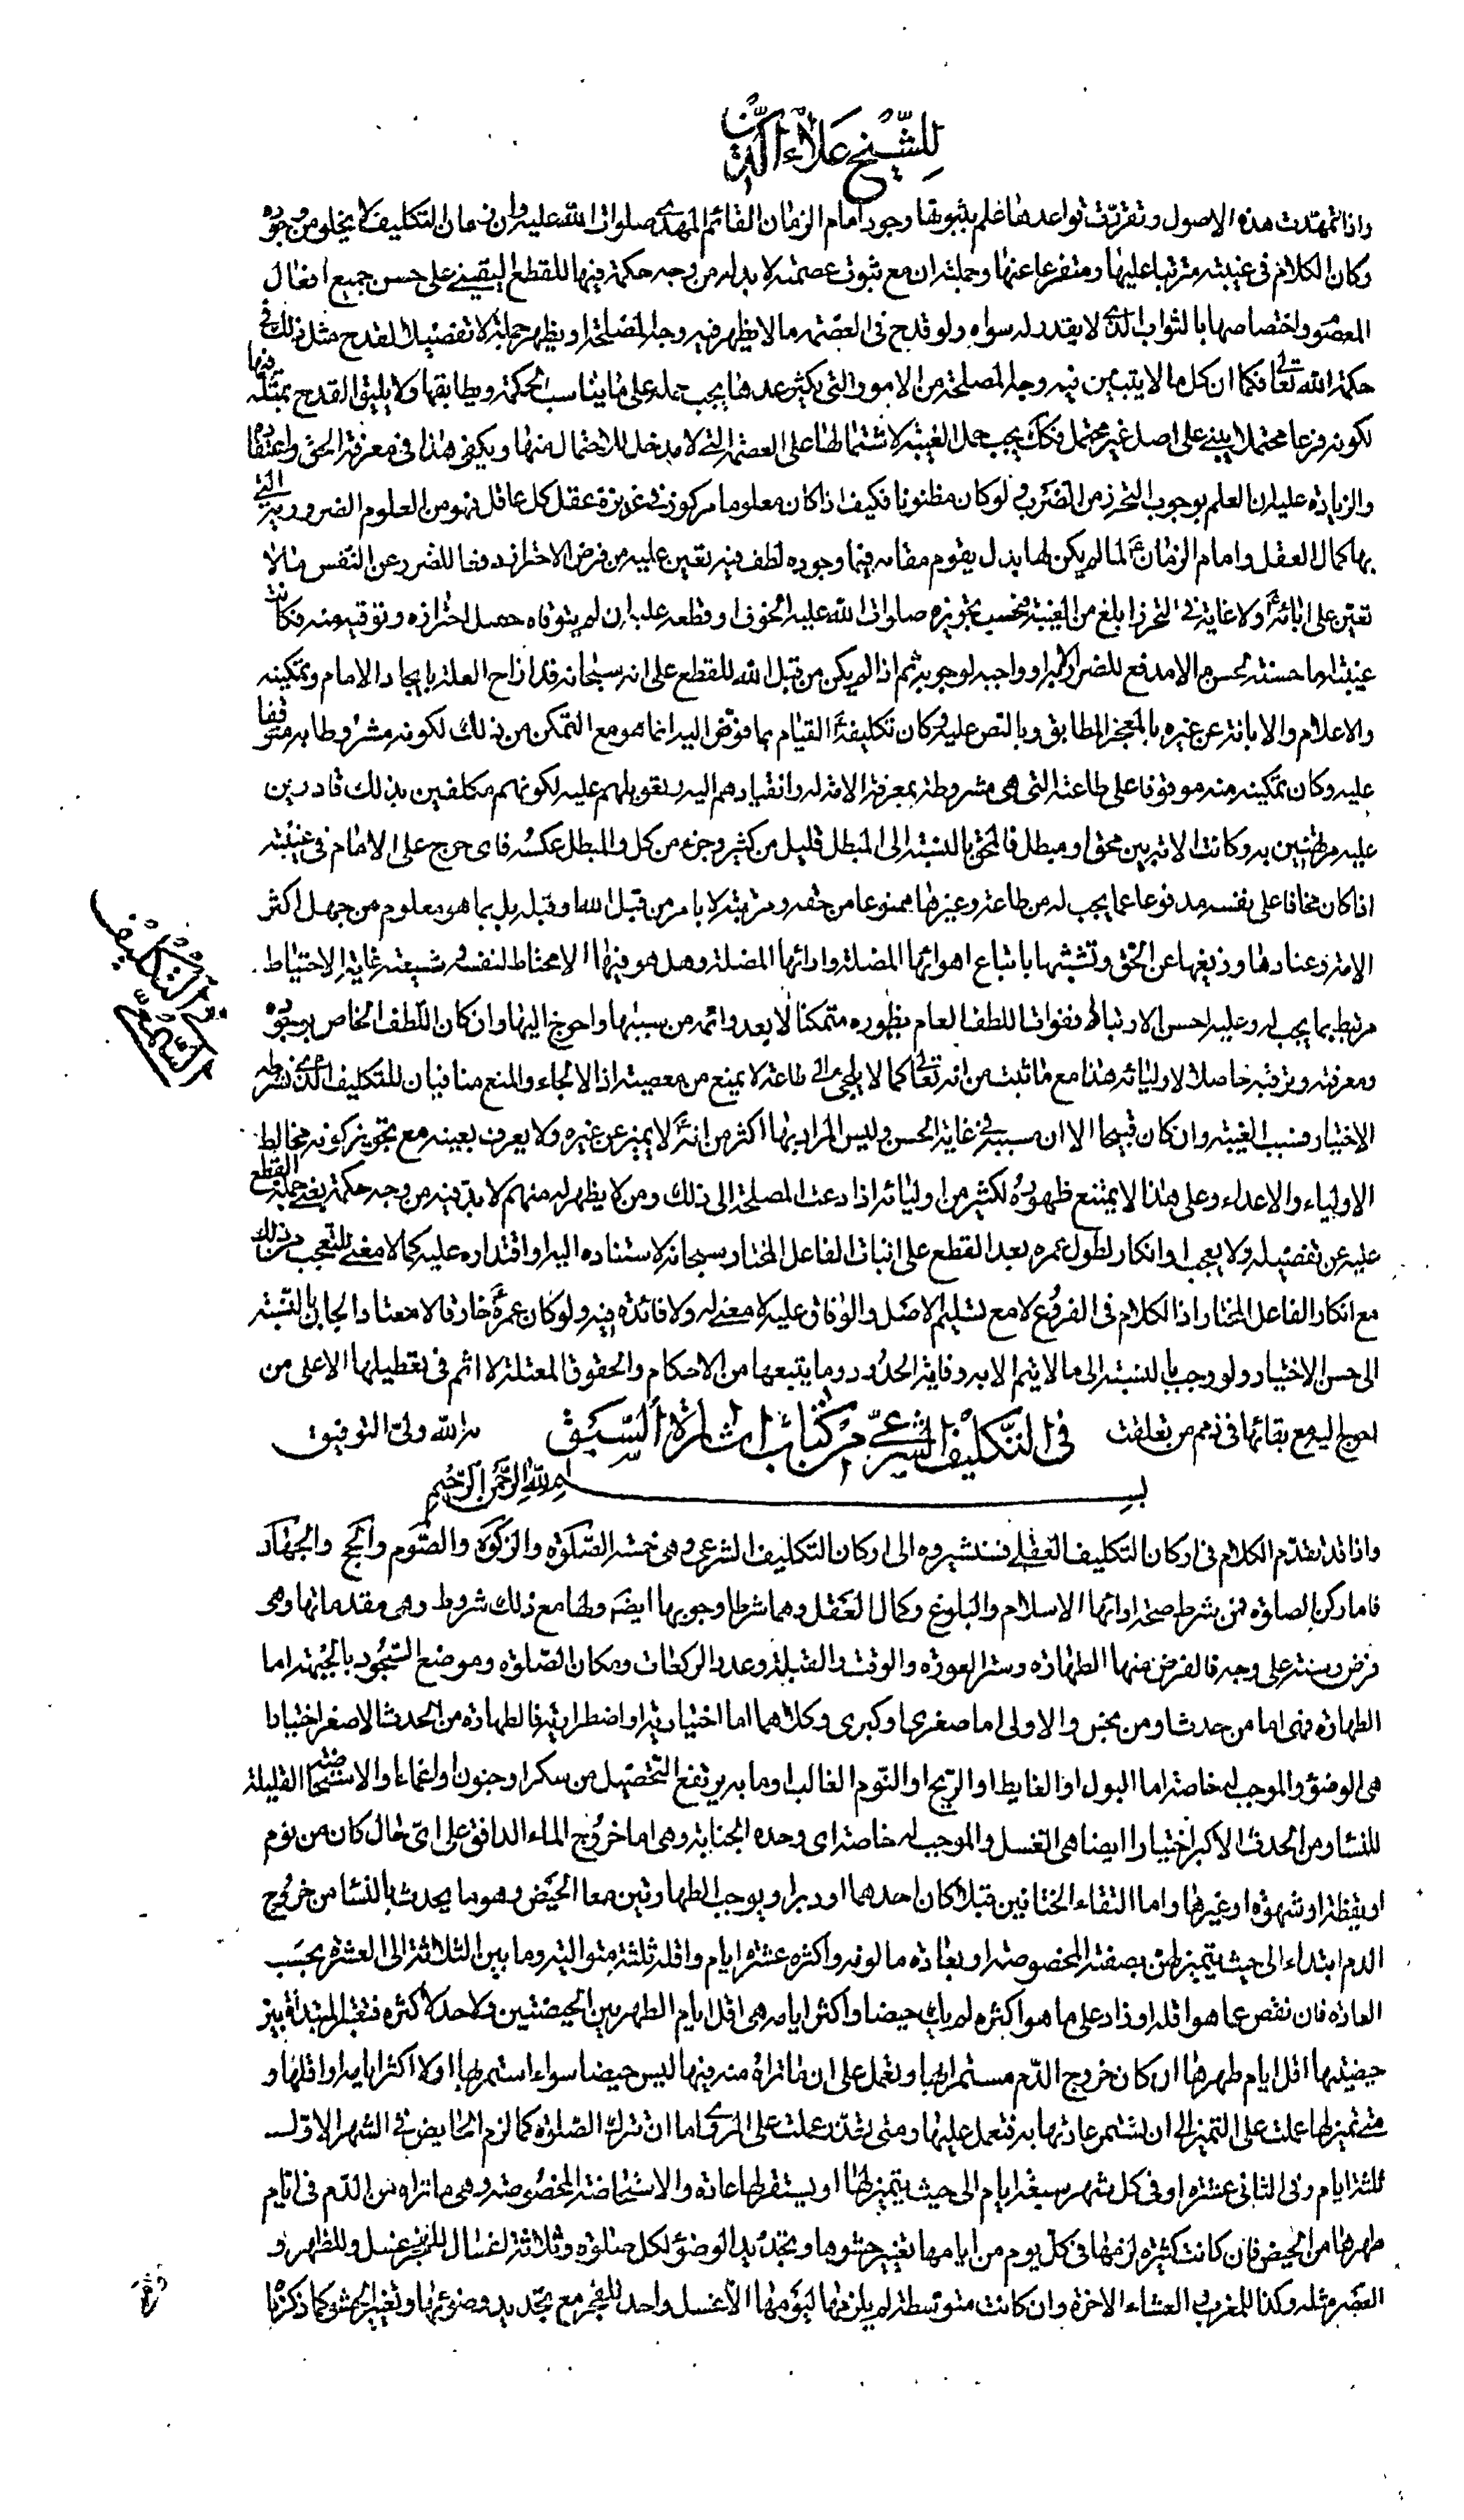 للشيخ علاء الدين
واذا تمهدت هذه الاصول وتقررت قواعدها علم بثبوتها وجود امام الزمان القائم المهدى صلوات الله عليه وان زمان التكليف لا يخلو من وجوده
وكان الكلام فى غيبته مترتبا عليها ومتفرعا عنها وجملته ان مع ثبوت عصمته لا بد له من وجه حكمة فيها للقطع اليقينى على حسن جميع افعال
المعصوم واختصاصها بالثواب الذى لا يقدر له سواه ولو قدح فى العصمة ما لا يظهر فيه وجه المصلحة او يظهر جملة لا تفصيلا لقدح مثل ذلك فى
حكمة الله تعالى فكما ان كل ما لا يتبين فيه وجه المصلحة من الامور التى يكثر عددها يجب حمله على ما يناسب الحكمة ويطابقها ولا يليق القدح بمثله فيها
لكونه فرعا محتملا يبنى على اصل غير محتمل فكك يجب حمل الغيبة لاشتمالها على العصمة التى لا مدخل للاحتمال فيها ويكفى هذا فى معرفة الحق واعتقاده
والزيادة عليه ان العلم بوجوب التحرز من الضرر ولو كان مظنونا فكيف اذا كان معلوما مركوز فى غريزة عقل كل عاقل فهو من العلوم الضرورية التى
بها كمال العقل وامام الزمان ع لما لم يكن لها بدل يقوم مقامه فيما وجوده لطف فيه تعين عليه من فرض الاحتراز دفعا للضرر عن النفس ما لا
تعين على ابائه ع ولا غاية فى التحرز ابلغ من الغيبة فبحسب تجويزه صلوات الله عليه الخوف او قطعه عليه ان لم يتوقاه حصل احترازه وتوقيه منه فكانت
غيبته اما حسنة لحسن ما لامدفع للضرر الا به او واجبة لوجوبه ثم اذا لم يكن من قبل الله للقطع على انه سبحانه قد ازاح العلة بايجاد الامام وتمكينه
والاعلام والابانة عن غيره بالمعجز المطابق وبالنص عليه وكان تكليفه ع القيام بما فوض اليه انما هو مع التمكن من ذلك لكونه مشروطا به متوقفا
عليه وكان تمكينه منه موقوفا على طاعته التى هى مشروطة بمعرفة الامة له وانقيادهم اليه وتعويلهم عليه لكونهم مكلفين بذلك قادرين
عليه مرتهنين به وكانت الامة بين محق او مبطل فالمحق بالنسبة الى المبطل قليل من كثير وجزء من كل والمبطل عكسه فاى حرج على الامام فى غيبته
اذا كان مخافا على نفسه مدفوعا عما يجب له من طاعة وغيرها ممنوعا من حقه ومرتبته لا بامر من قبل الله او قبله بل بما هو معلوم من جهل اكثر
الامة وعنادها وزيغها عن الحق وتشبثها باتباع اهوائها المضلة وارائها المضلة وهل هو فيها الا محتاط لنفسه وشيعته غاية الاحتياط
مرتبط بما يجب له وعليه احسن الارتباط وفوات اللطف العام بظهوره متمكنا لا يعدو اثمه من سببها واحوج اليها وان كان اللطف الخاص بوجوده
ومعرفته وترقبه حاصلا لاوليائه هذا مع ما ثبت من انه تعالى كما لا يلجى الى طاعة لا يمنع من معصية اذ الالجاء والمنع منافيان للتكليف الذى شرطه
الاختيار فسبب الغيبة وان كان قبيحا الا ان مسببه فى غاية الحسن وليس المراد بها اكثر من انه ع لا يميز عن غيره ولا يعرف بعينه مع تجويز كونه مخالط
الاولياء والاعداء وعلى هذا لا يمتنع ظهوره لكثير من اوليائه اذا دعت المصلحة الى ذلك ومن لا يظهر له منهم لا بد فيه من وجه حكمة يغنى جملة القطع
عليه عن تفصيله ولا يعجب وانكار لطول عمره بعد القطع على اثبات الفاعل المختار سبحانه لاستناده اليه واقتداره عليه كما لا مغنى للتعجب من ذلك
مع انكار الفاعل المختار اذ الكلام فى الفروع لا مع تسليم الاصل والوفاق عليه لا معنى له ولا فائدة فيه ولو كان عمره ع خارقا لامعتادا لجاز بالنسبة
الى حسن الاختيار ولو وجب بالنسبة الى ما لا يتم الا به وفاية الحدود وما يتبعها من الاحكام والحقوق المعتلة لا اثم فى تعطيلها الا على من
احوج اليه مع بقائها فى ذمم من تعلقت به والله ولى التوفيق
فى التكليف الشرعى من كتاب اشارة السبق
بسم الله الرحمن الرحيم
واذا قد تقدم الكلام فى اركان التكليف العقلى فسنشيره الى اركان التكليف الشرعى وهى خمسة الصلوة والزكوة والصوم والحج والجهاد
فاما ركن الصلوة فمن شرط صحة ادائها الاسلام والبلوغ وكمال العقل وهما شرطا وجوبها ايضا ولها مع ذلك شروط وهى مقدماتها وهى
فرض وسنة على وجه فالفرض منها الطهارة وستر العورة والوقت والقبلة وعدد الركعات ومكان الصلوة وموضع السجود بالجبهة اما
الطهارة فهى اما من حدث او من نجس والاولى اما صغرى او كبرى وكلاهما اما اختيارية او اضطرارية فالطهارة من الحدث الاصغر اختيارا
هى الوضوء والموجب له خاصة اما البول او الغايط او الريح او النوم الغالب او ما به يرتفع التحصيل من سكر او جنون او اغماء والاستحاضة القليلة
للنساء ومن الحدث الاكبر اختيارا ايضا هى الغسل والموجب له خاصة اى وحده الجنابة وهى اما خروج الماء الدافق على اى حال كان من نوم
او يقظة او شهوة او غيرها واما التقاء الختانين قبلا كان احدهما او دبرا ويوجب الطهارتين معا الحيض وهو ما يحدث بالنساء من خروج
الدم ابتداء الى حيث يتميز لهن بصفته المخصوصة او بعادة مالوفه واكثره عشرة ايام واقله ثلثة متوالية وما بين الثلاثة الى العشرة بحسب
العادة فان نقص عما هو اقله او زاد على ما هو اكثره لم يك حيضا واكثر ايامه هى اقل ايام الطهر بين الحيضتين ولا حد لاكثره فتعتبر المبتدأة بين
حيضتيها اقل ايام طهرها ان كان خروج الدم مستمرا بها وتعمل على ان ما تراه منه فيها ليس حيضا سواء استمر بها اولا اكثر ايامه او اقلها و
متى تميز لها عملت على التميز الى ان تستمر عادتها به فتعمل عليها ومتى تعذر عملت على المروى اما ان تترك الصلوة كما لزم الحايض فى الشهر الاول
ثلثة ايام وفى الثانى عشرة او فى كل شهر سبعة ايام الى حيث يتميز لها او يستقر لها عادة والاستحاضة المخصوصة وهى ما تراه من الدم فى ايام
طهرها من الحيض فان كانت كثيرة لزمها فى كل يوم من ايامها تغيير حشوها وتجديد الوضوء لكل صلوة وثلاثة اغسال للفجر غسل وللظهر و
العصر مثله وكذا للمغرب والعشاء الاخرة وان كانت متوسطة لم يلزمها ليومها الا غسل واحد للفجر مع تجديد وضوئها وتغيير الحشو كما ذكرنا
فى التكليف
الشرعى